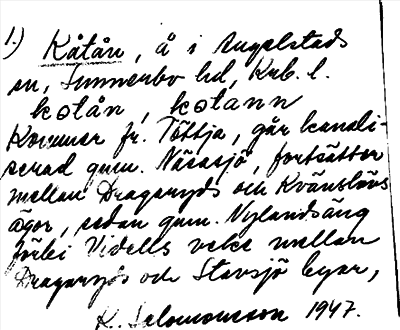 1.) Kåtån, å i Angelstads
sn, Sunnerbo hd, Krb. l.
kotån, kotånn
Kommer fr. Töttja, går kanali-
serad gnm. Näsasjö, fortsätter
mellan Dragaryds och Kvänslövs
ägor, sedan gnm. Nylandsäng
förbi Vidells veke mellan
Dragaryds och Stavsjö byar,
K. Salomonsson 1947.